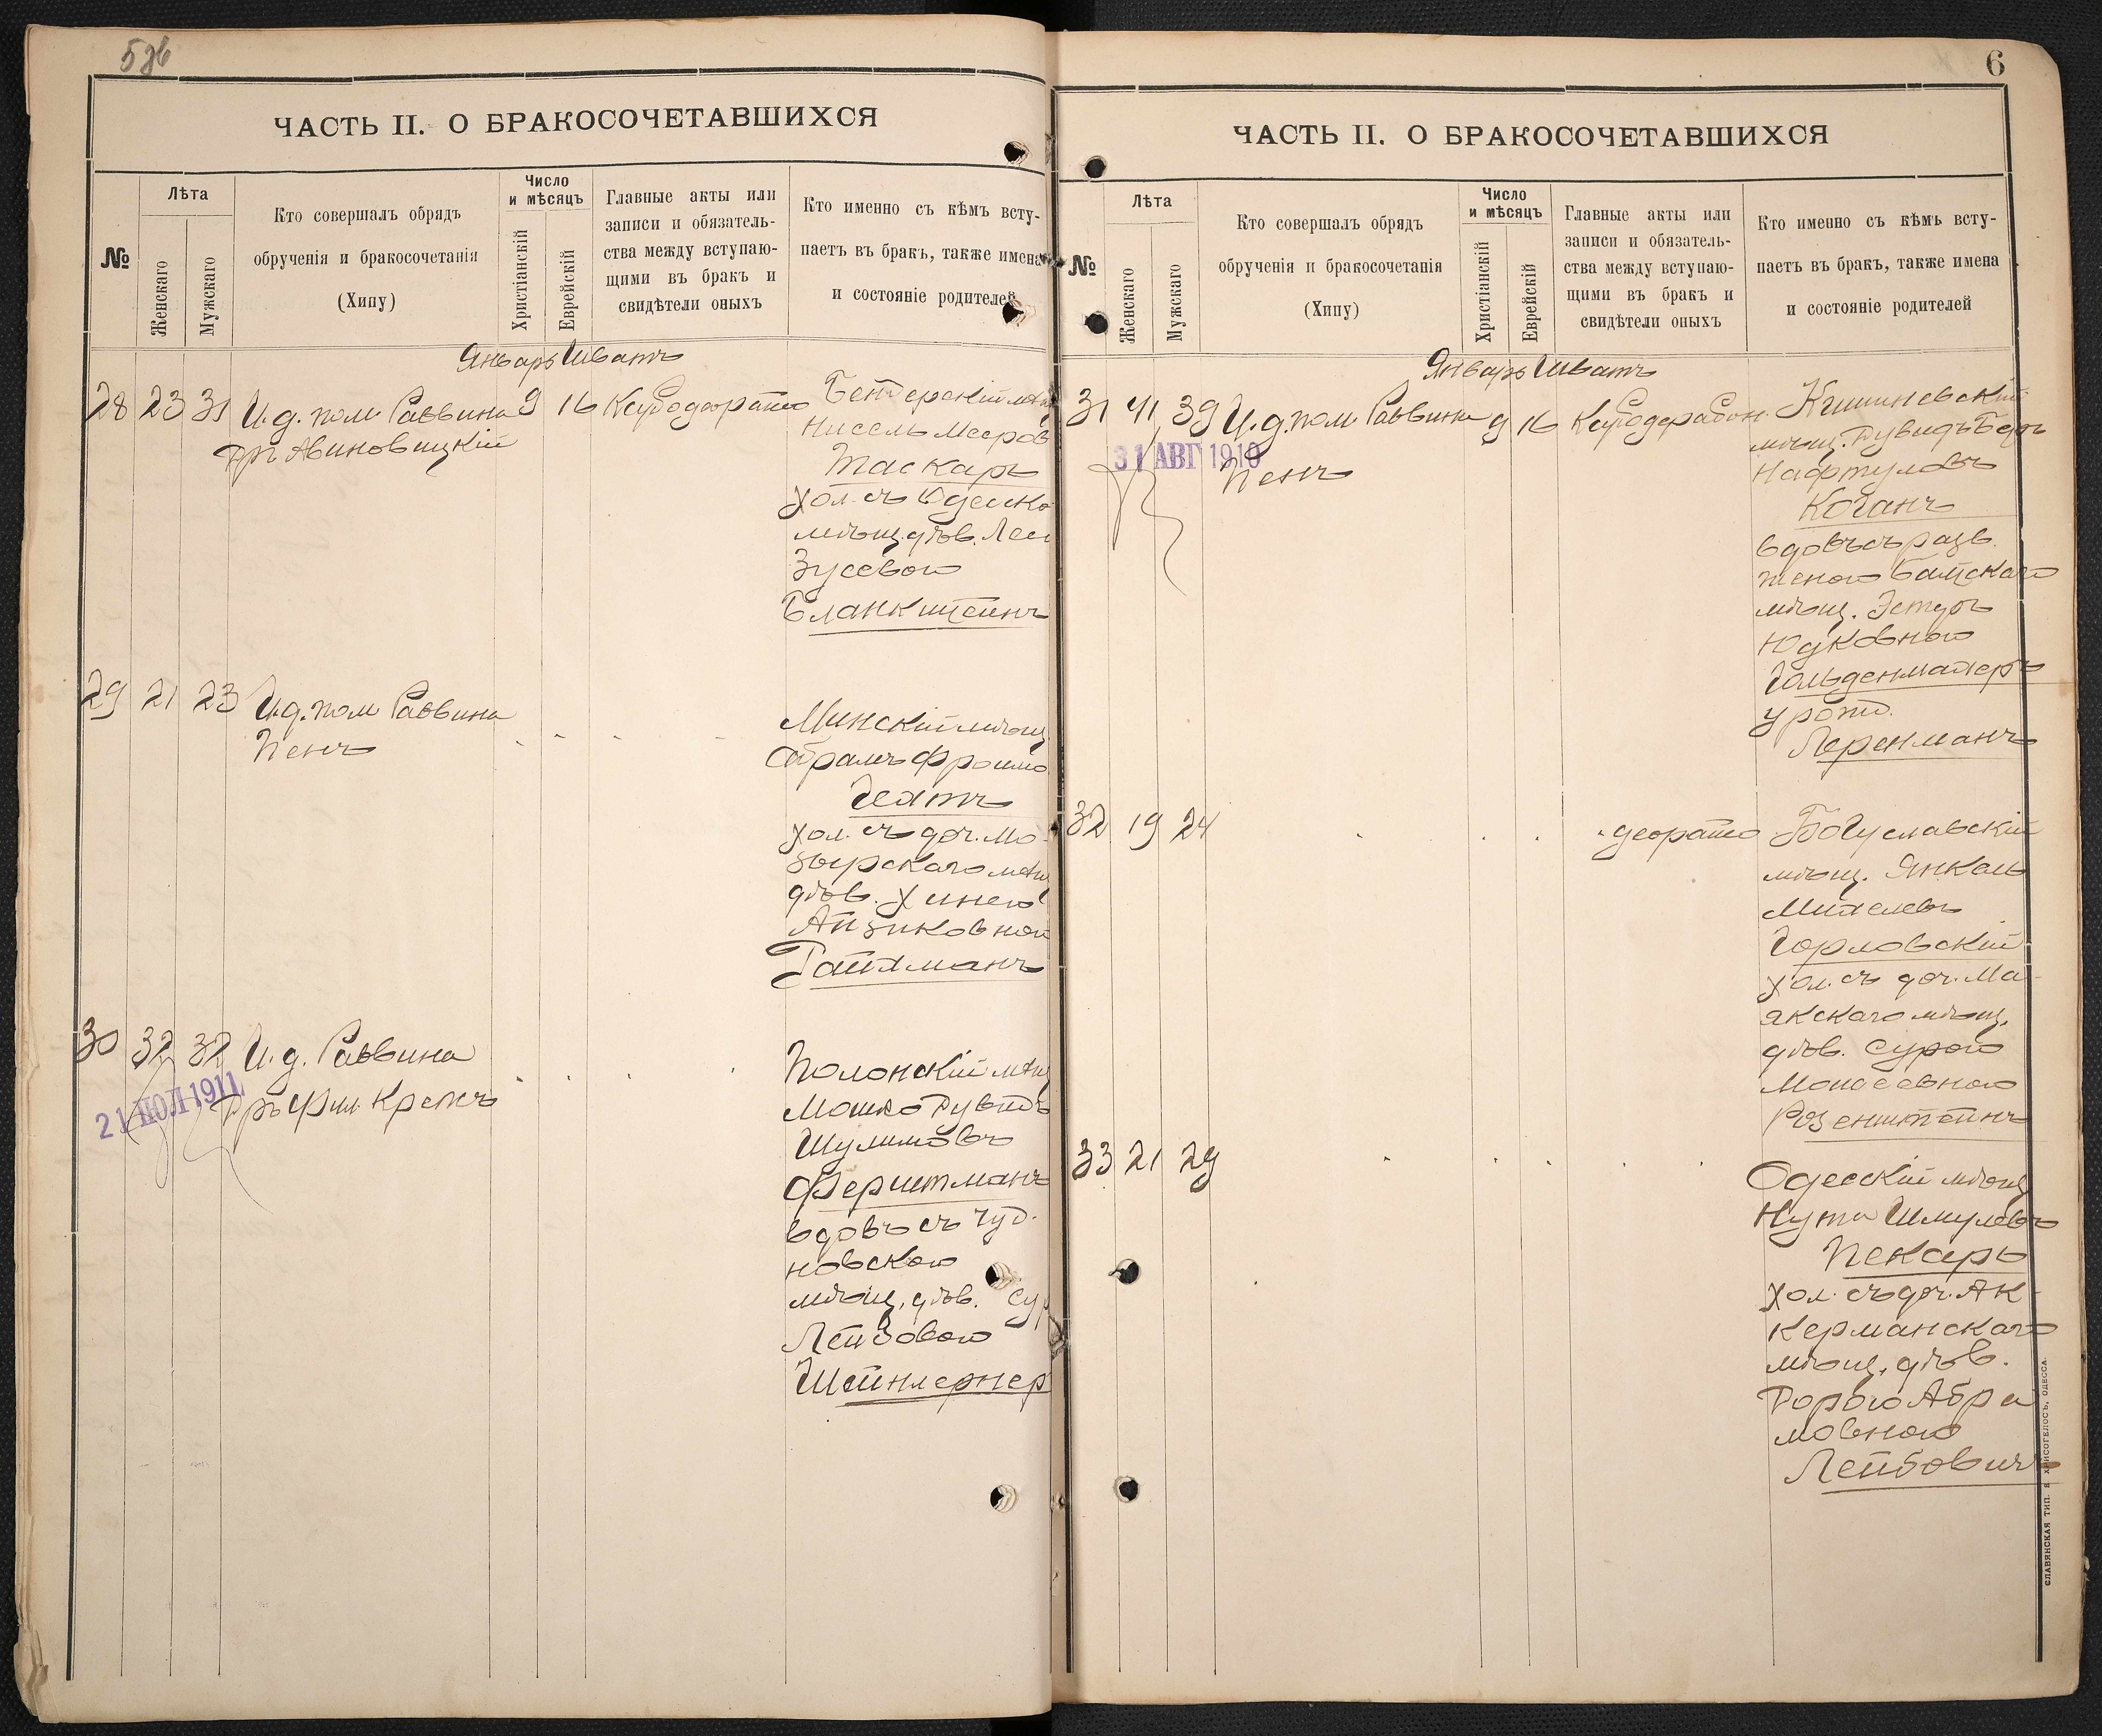 ЧАСТЬ II. О БРАКОСОЧЕТАВШИХСЯ
№
Лѣта
Женскаго
Мужскаго
Кто совершалъ обрядъ
обрученія и бракосочетанія
(Хипу)
Число
и мѣсяцъ
Христіанскій
Еврейскій
Главные акты или
записи и обязатель-
ства между вступаю-
щими въ бракъ и
свидѣтели оныхъ
Кто именно съ кѣмъ всту-
паетъ въ бракъ, также имена
и состояніе родителей
Январь Шватъ
28 23 31 И.д. пом Раввина 9 16
Дръ Авиновицкій
Бендерскій
Нисель Мееров
Таскаръ
хол. съ Одесско
мѣщ. дѣв.
Зусевою
Бланкштейнъ
29 21 23 И.д. пом Раввина
Пенъ
Минскій мѣщ
Абрамъ Фроимо
Гехтъ
хол. съ доч. Мо
зырскаго мѣщ
дѣв. Хинею
Айзиковною
Райхманъ
30 32 32 И.д. Раввина
21 ІЮЛ 1911
Дръ Фил. Крепсъ
Полонскій мѣщ
Мошко Дувидъ
Шулимовъ
Ферштманъ
вдовъ съ Чуд.
новскою
мѣщ. дѣв. Сур
Лейзовою
Штейнлернер
6
ЧАСТЬ II. О БРАКОСОЧЕТАВШИХСЯ
№
Лѣта
Женскаго
Мужскаго
Кто совершалъ обрядъ
обрученія и бракосочетанія
(Хипу)
Число
и мѣсяцъ
Христіанскій
Еврейскій
Главные акты или
записи и обязатель-
ства между вступаю-
щими въ бракъ и
свидѣтели оныхъ
Кто именно съ кѣмъ всту-
паетъ въ бракъ, также имена
и состояніе родителей
Январь Шватъ
31 41 39 И.д. пом Раввина 9 16
31 АВГ 1910
Пенъ
Кишиневскій
мѣщ. Дувидъ Беръ
Нафтуловъ
Коганъ
вдовъ съ разв.
женою Балтскаго
мѣщ. Эстеръ
Юдковною
Гольденмайеръ
урожд.
Леренманъ
32 19 24
Богуславскій
мѣщ. Янкель
Михелевъ
Горловскій
хол. съ доч. Ма
якскаго мѣщ.
дѣв. Сурою
Моисеевною
Розенштейнъ
33 21 29
Одесскій мѣщ
Нута Шмулевъ
Пекарь
хол. съ доч. Ак
керманскаго
мѣщ. дѣв.
Дорою Абра
мовною
Лейбовичъ
СЛАВЯНСКАЯ ТИП. Е. ХРИСОГЕЛОСЪ, ОДЕССА.